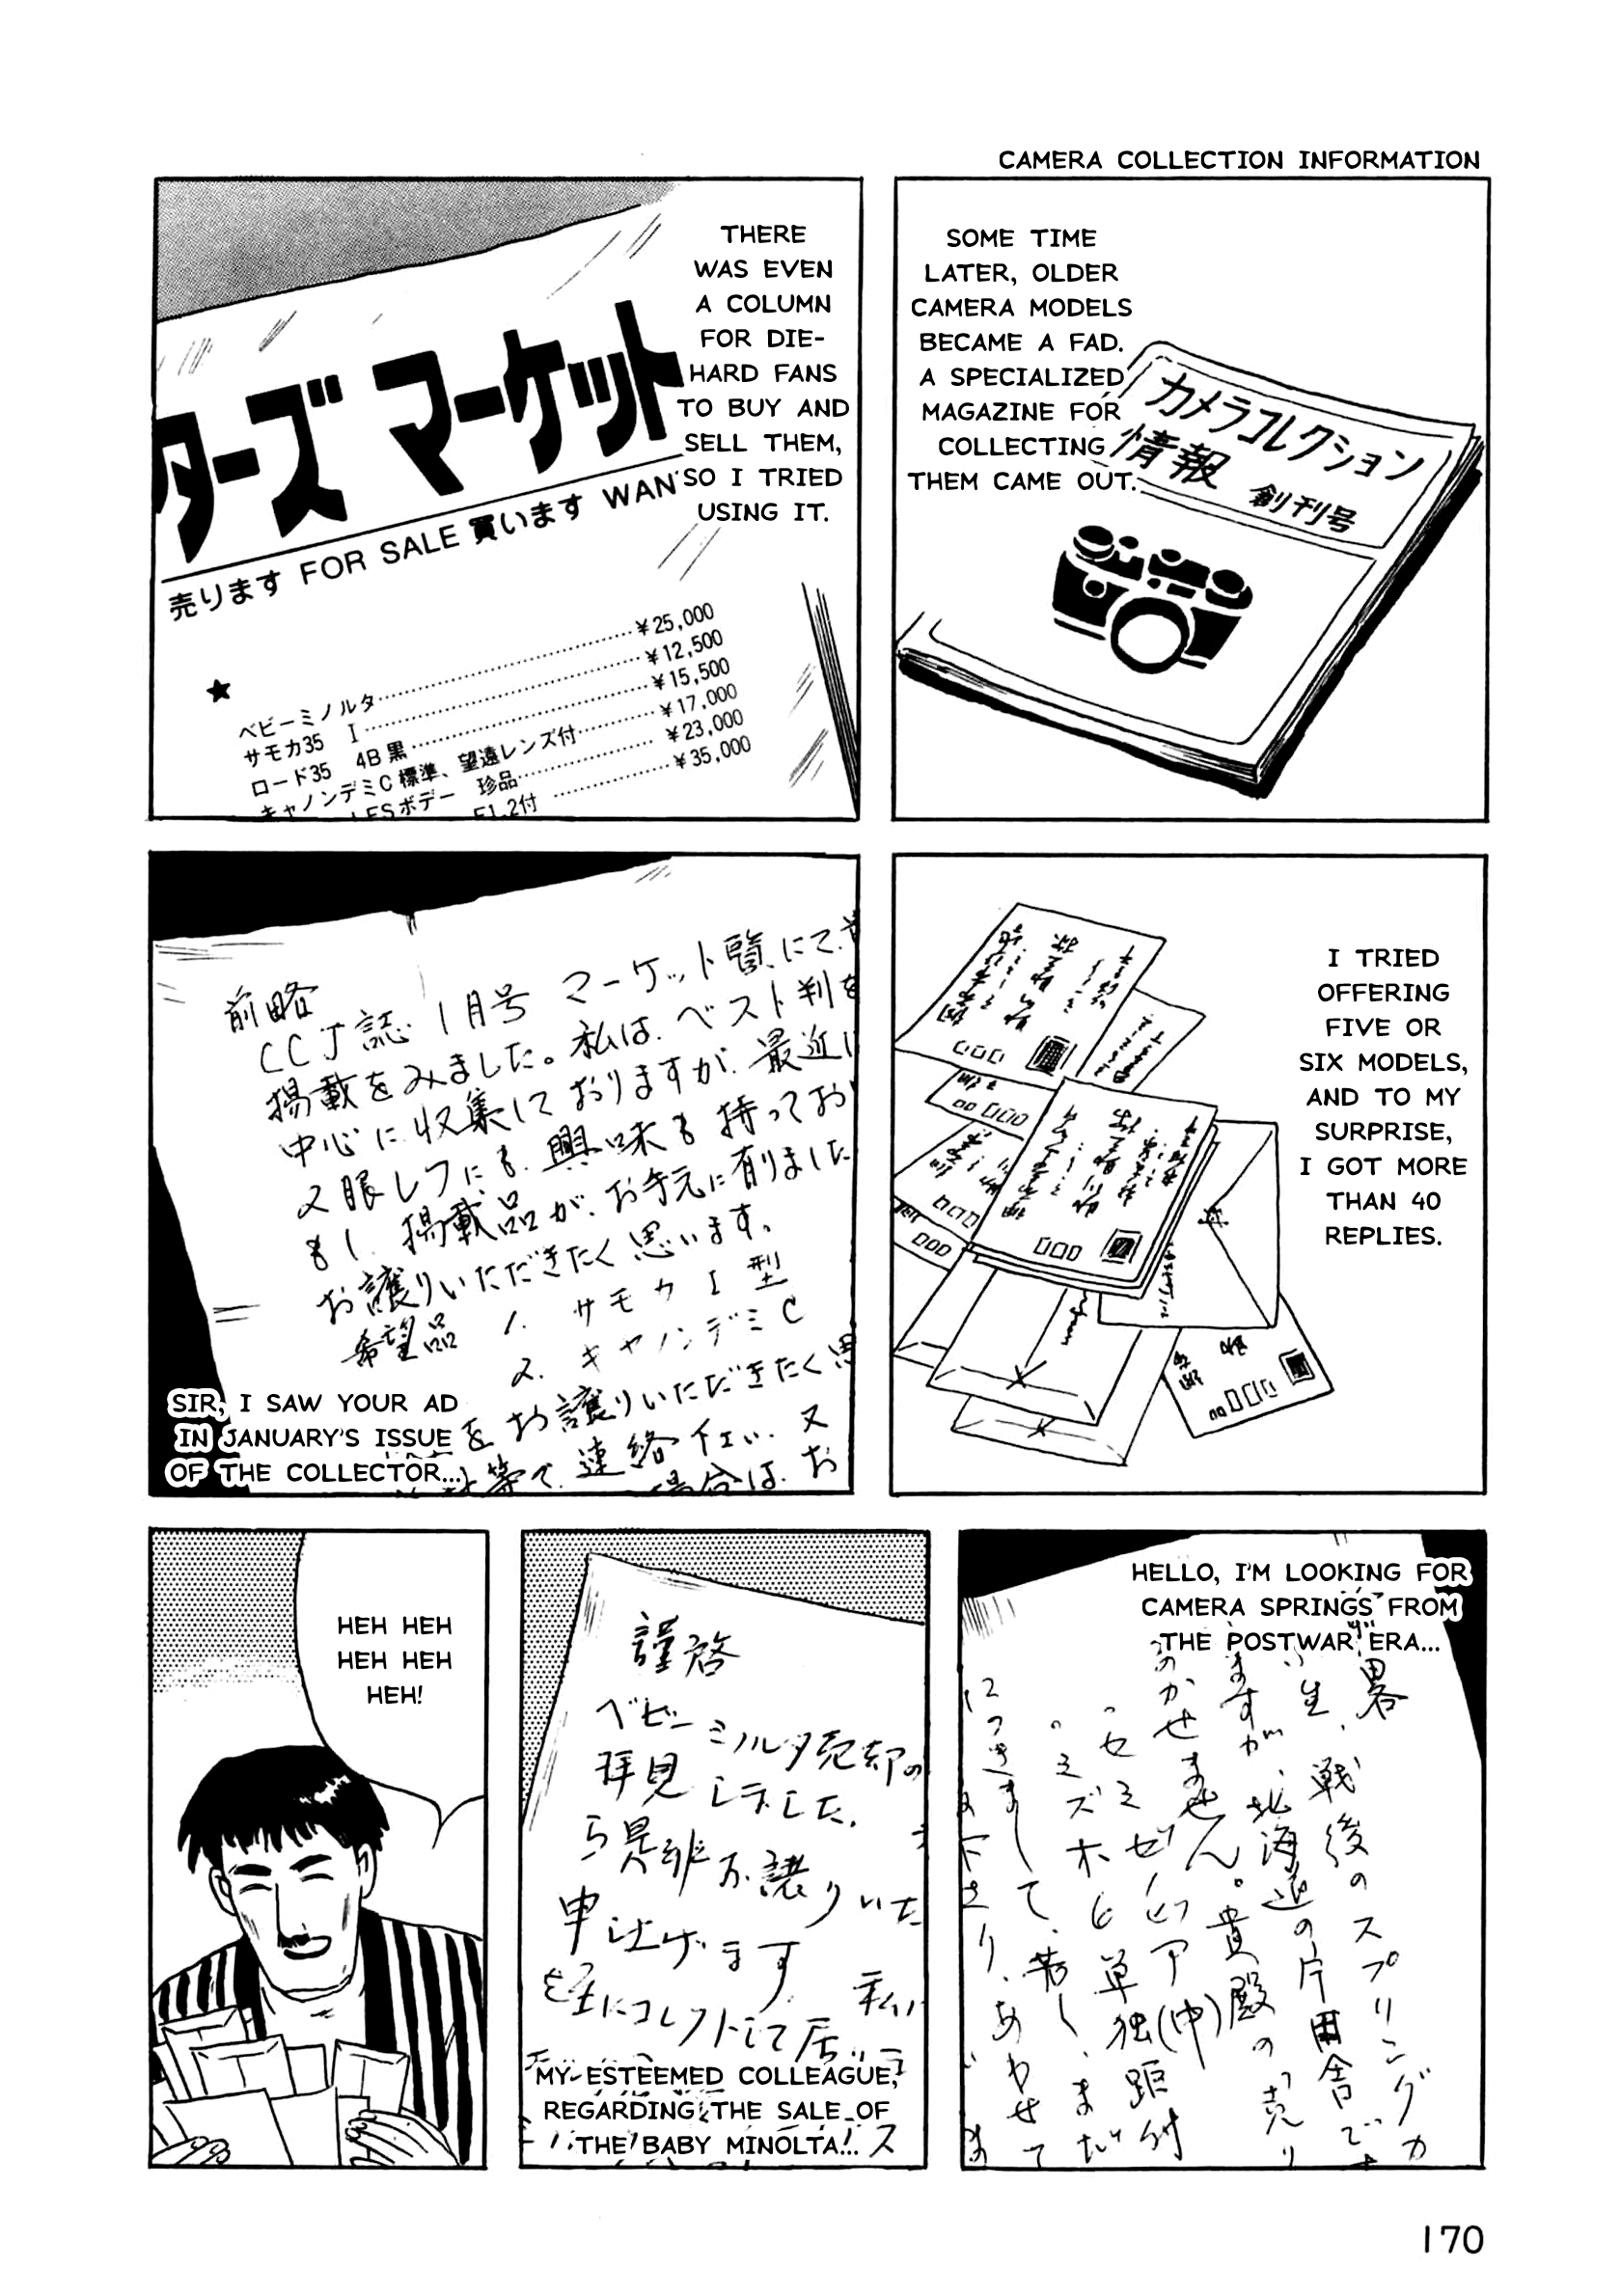 CAMERA COLLECTION INFORMATION
SOME TIME
LATER, OLDER
CAMERA MODELS
BECAME A FAD.
A SPECIALIZED
MAGAZINE FOR
COLLECTING
THEM CAME OUT.
カメラコレクション
情報 創刊号
THERE
WAS EVEN
A COLUMN
FOR DIE-
HARD FANS
TO BUY AND
SELL THEM,
SO I TRIED
USING IT.
ターズ マーケット
売ります FOR SALE 買います WAN
★
ベビーミノルタ……¥25,000
サモカ35 I……¥12,500
ロード35 4B黒……¥15,500
キャノンデミC標準、望遠レンズ付……¥17,000
ボデー 珍品……¥23,000
F1.2付……¥35,000
I TRIED
OFFERING
FIVE OR
SIX MODELS,
AND TO MY
SURPRISE,
I GOT MORE
THAN 40
REPLIES.
前略
CCJ誌 1月号 マーケット覧にて
掲載をみました。私は、ベスト判を
中心に収集しておりますが、最近
2眼レフにも、興味も持ってお
もし、掲載品が、お手元に有りました
お譲りいただきたく思います。
希望品 1. サモカI型
2. キャノンデミC
をお譲りいただきたく思
等で、連絡下さい。又
場合は、お
SIR, I SAW YOUR AD
IN JANUARY'S ISSUE
OF THE COLLECTOR...
HELLO, I'M LOOKING FOR
CAMERA SPRINGS FROM
THE POSTWAR ERA...
略
戦後のスプリングカ
生、北海道の片田舎で
ますが、
のかせません。貴殿の「売り
。セミゼノビア(中)
。ミズホ6 単独距付
につきまして、若し、まだ
下さり、あわせて
謹啓
ベビーミノルタ売却の
拝見しました。
ら是非お譲りいた
申し上げます
主にコレクトして居
MY ESTEEMED COLLEAGUE,
REGARDING THE SALE OF
THE BABY MINOLTA...
HEH HEH
HEH HEH
HEH!
170